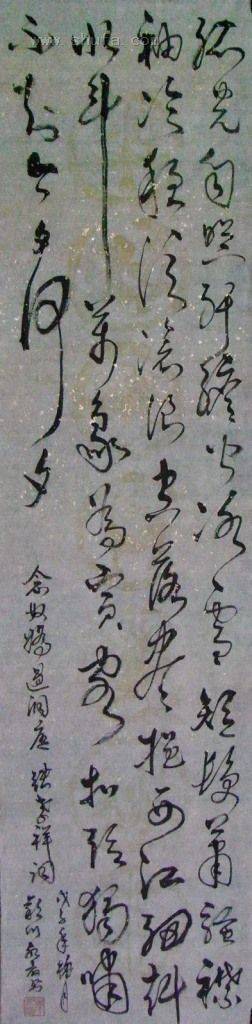 www.shufa.com
孤光自照肝膽皆冰雪短髮蕭騷襟
袖冷穩泛滄浪空闊盡挹西江細斟
北斗萬象為賓客扣舷獨嘯
不知今夕何夕
念奴嬌過洞庭 張孝祥詞
戊子年月